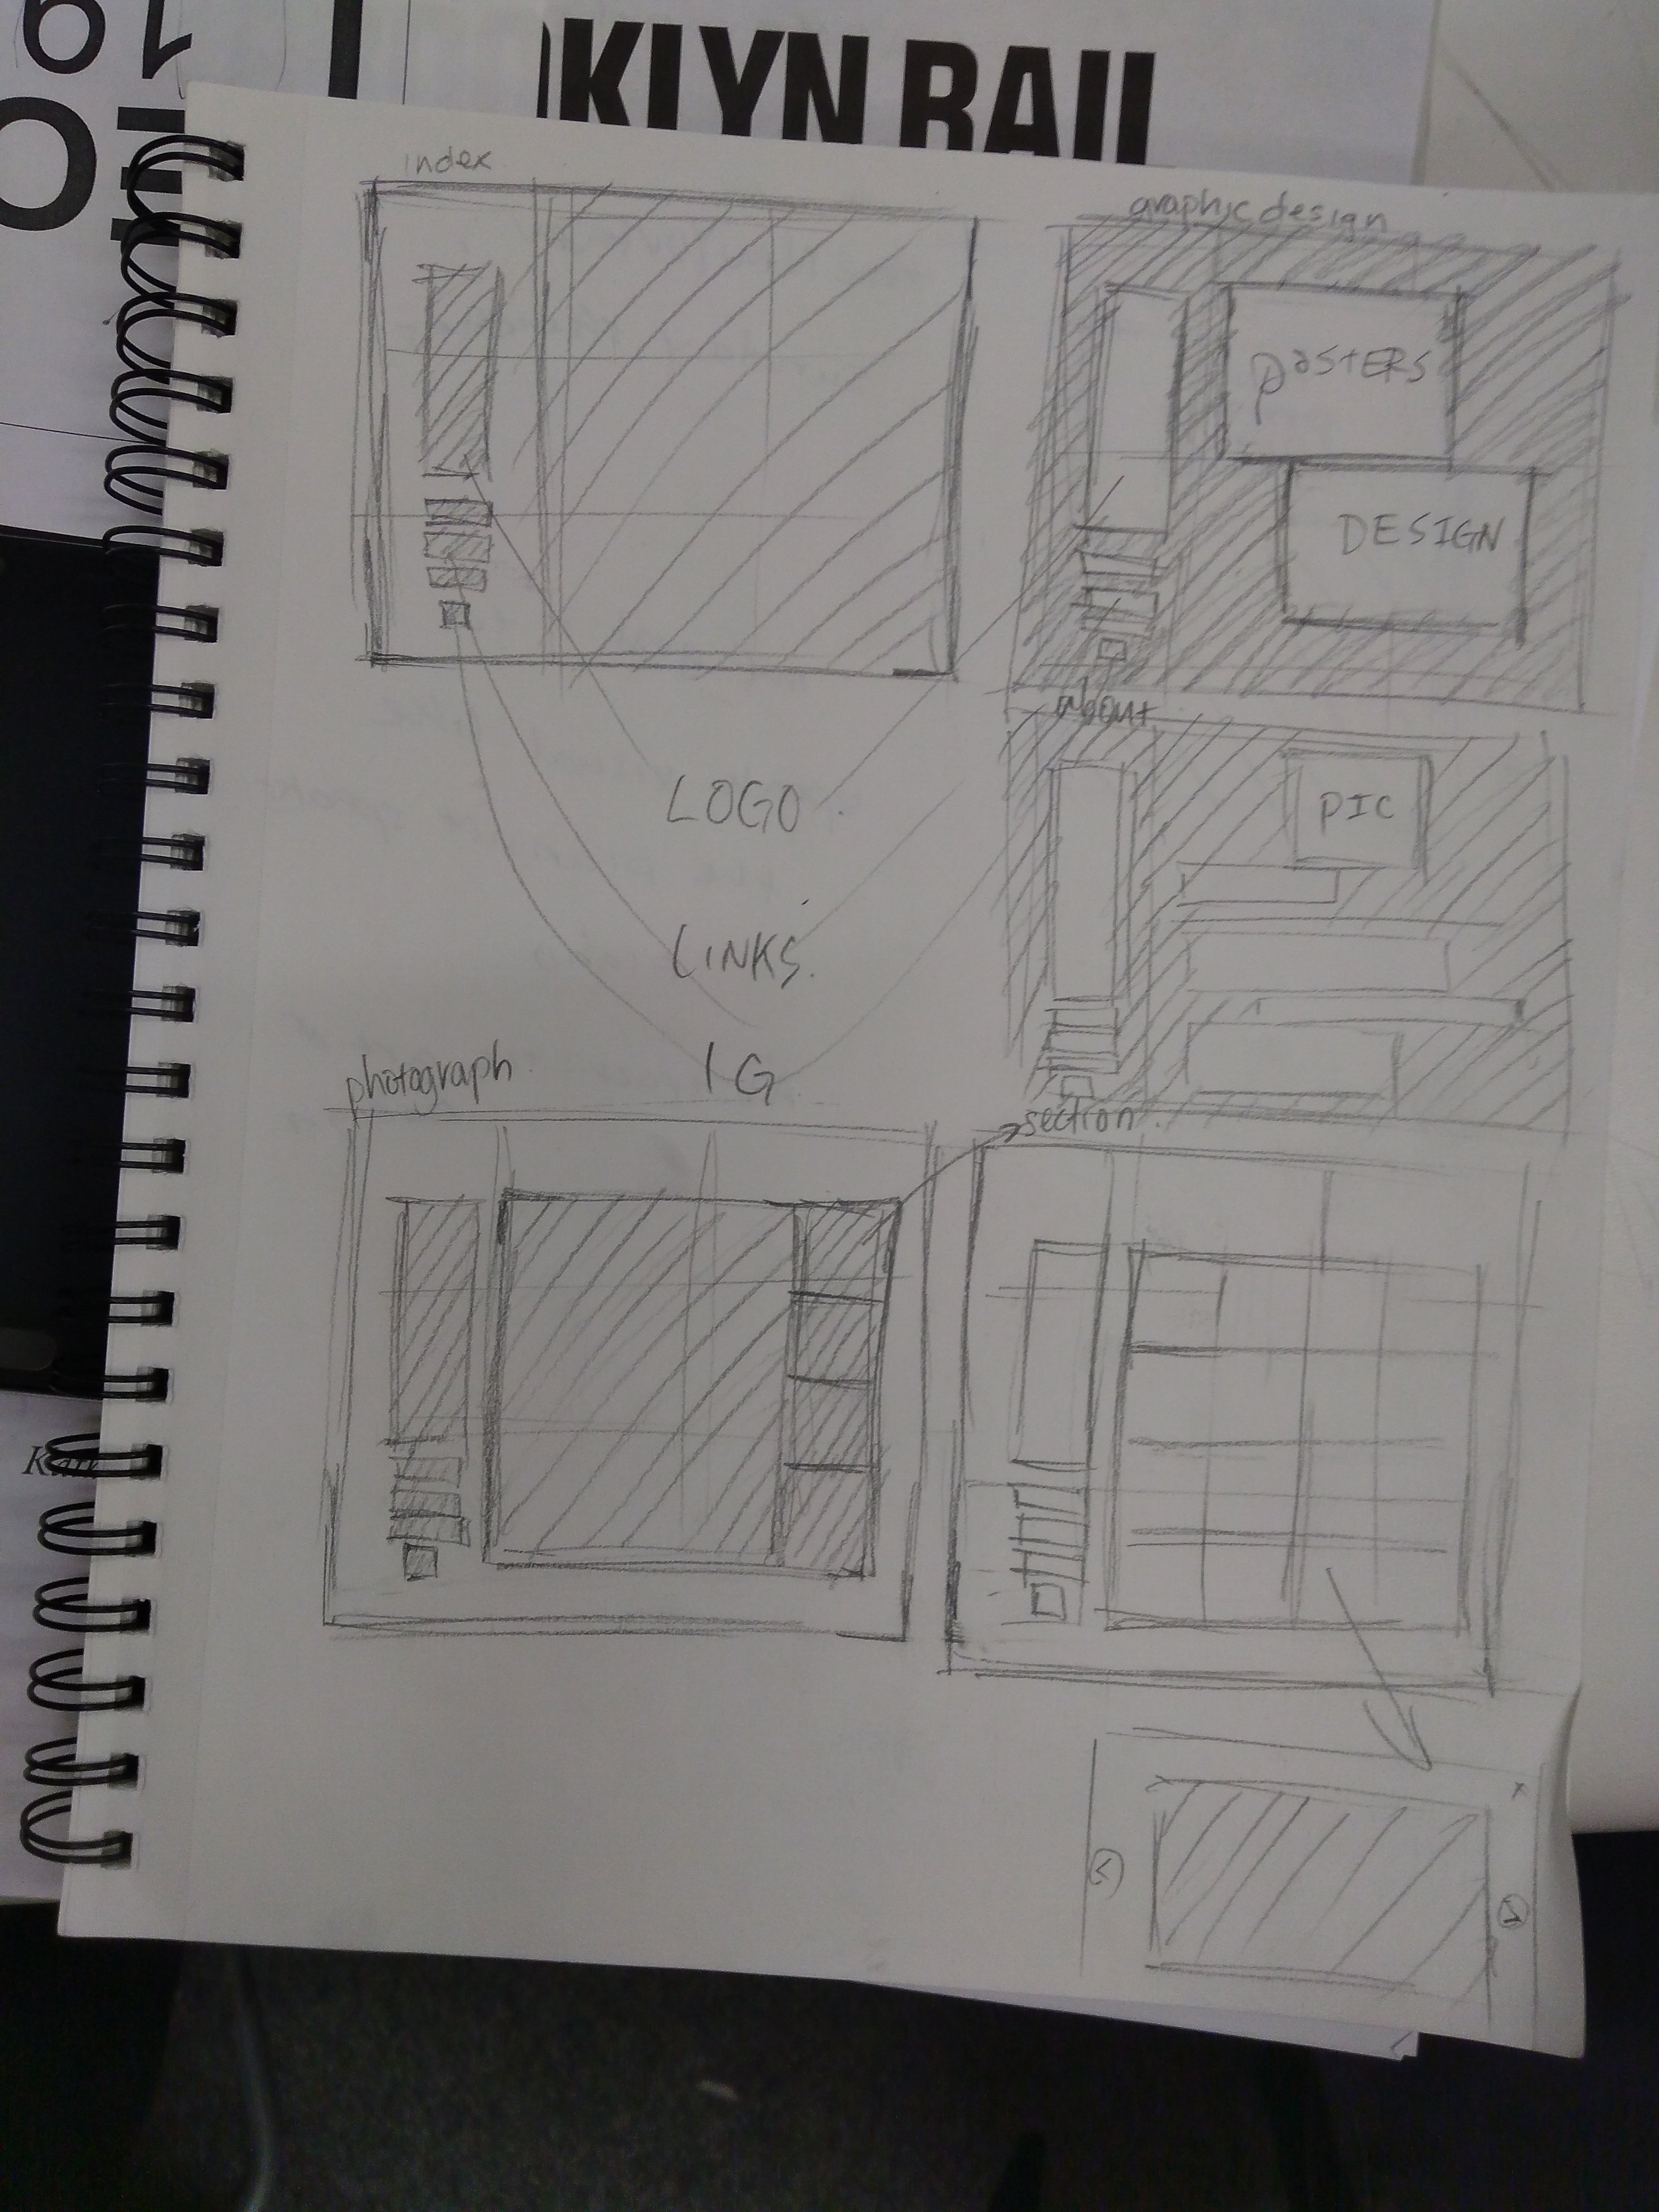 index
graphic design
POSTERS
DESIGN
about
PIC
LOGO
LINKS.
IG
photograph
section